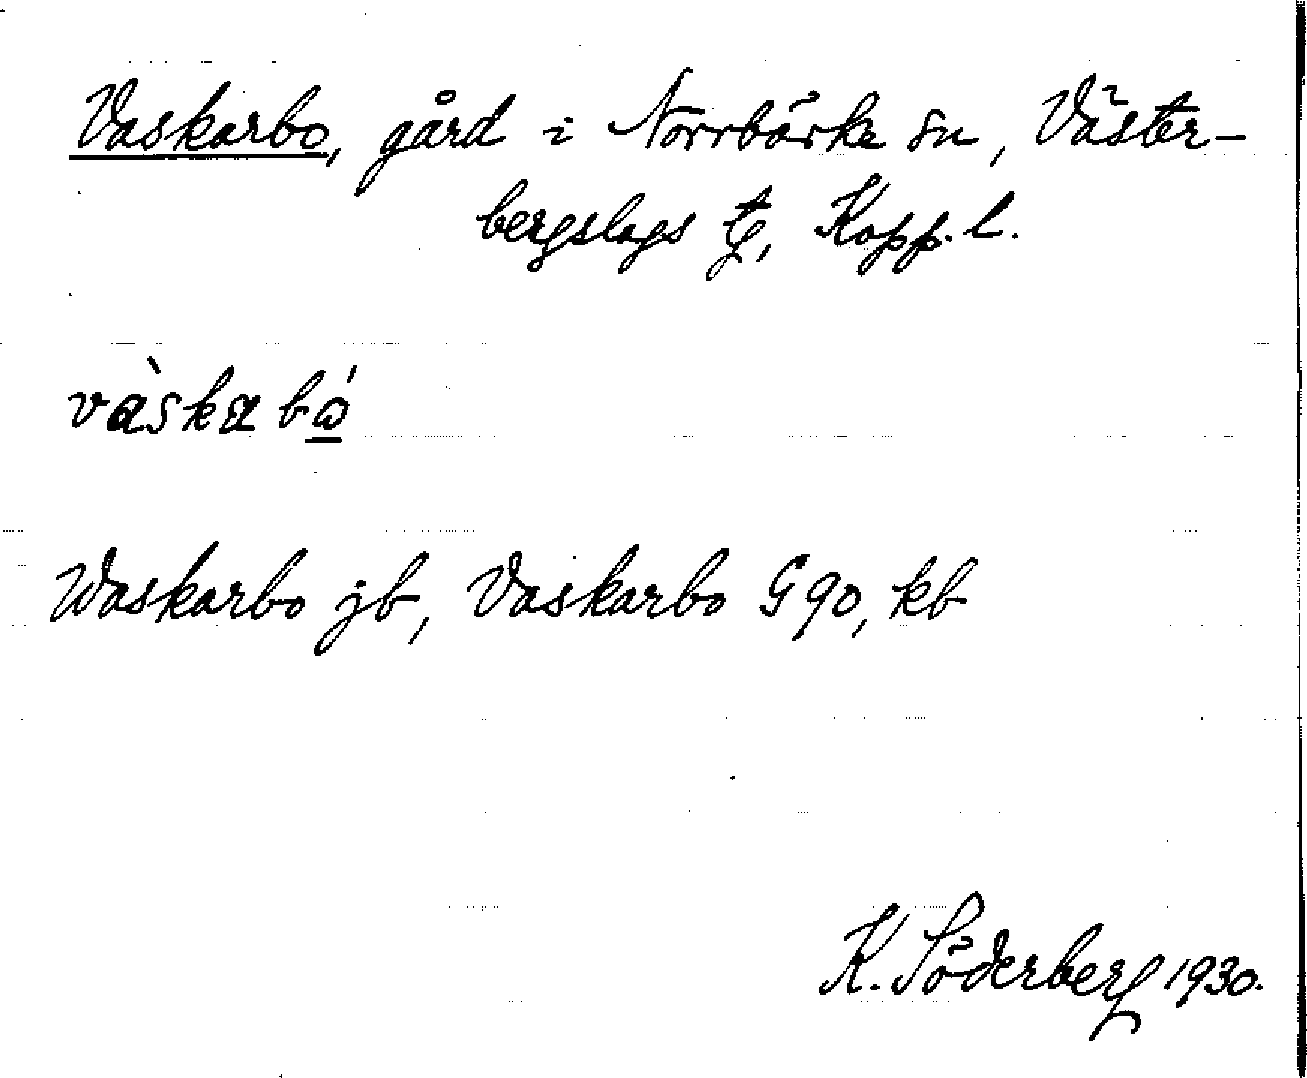 Vaskarbo, gård i Norrbärke sn, Väster-
bergslags tg, Kopp. l.
vàskabó
Waskarbo jb, Vaskarbo G 90, kb
K. Söderberg 1930.